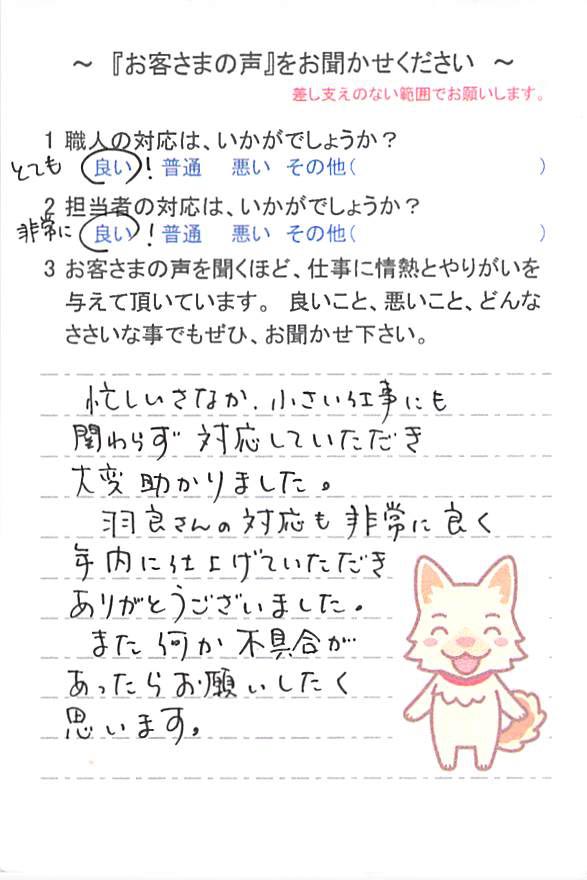 ~ 『お客さまの声』をお聞かせください ~
差し支えのない範囲でお願いします。
1 職人の対応は、いかがでしょうか?
とても 良い! 普通 悪い その他( )
2 担当者の対応は、いかがでしょうか?
非常に 良い! 普通 悪い その他( )
3 お客さまの声を聞くほど、仕事に情熱とやりがいを
与えて頂いています。 良いこと、悪いこと、どんな
ささいな事でもぜひ、お聞かせ下さい。
忙しいさなか、小さい仕事にも
関わらず 対応していただき
大変 助かりました。
羽良さんの対応も 非常に良く
年内に仕上げていただき
ありがとうございました。
また何か不具合が
あったらお願いしたく
思います。